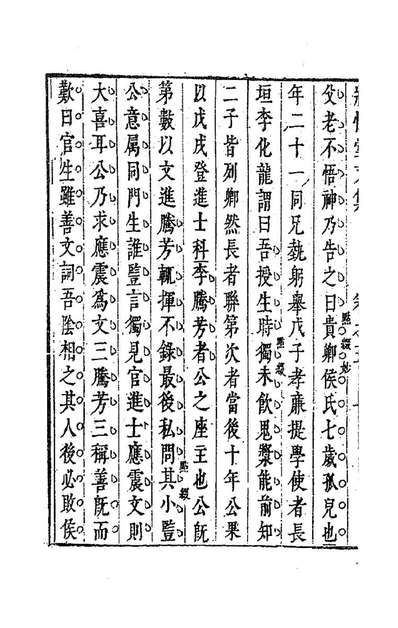 父老不悟神乃告之曰貴鄉侯氏七歲孤兒也
年二十一同兄執躬舉戊子孝廉提學使者長
垣李化龍謂曰吾授生時獨未飲鬼漿能前知
二子皆列鄉然長者聯第次者當後十年公果
以戊戌登進士科李騰芳者公之座主也公旣
第數以文進騰芳輒揮不錄最後私問其小豎
公意属同門生誰豎言獨見官進士應震文則
大喜耳公乃求應震爲文三騰芳三稱善旣而
歎曰官生雖善文詞吾陰相之其人後必敗侯
點綴妙
點綴
點綴